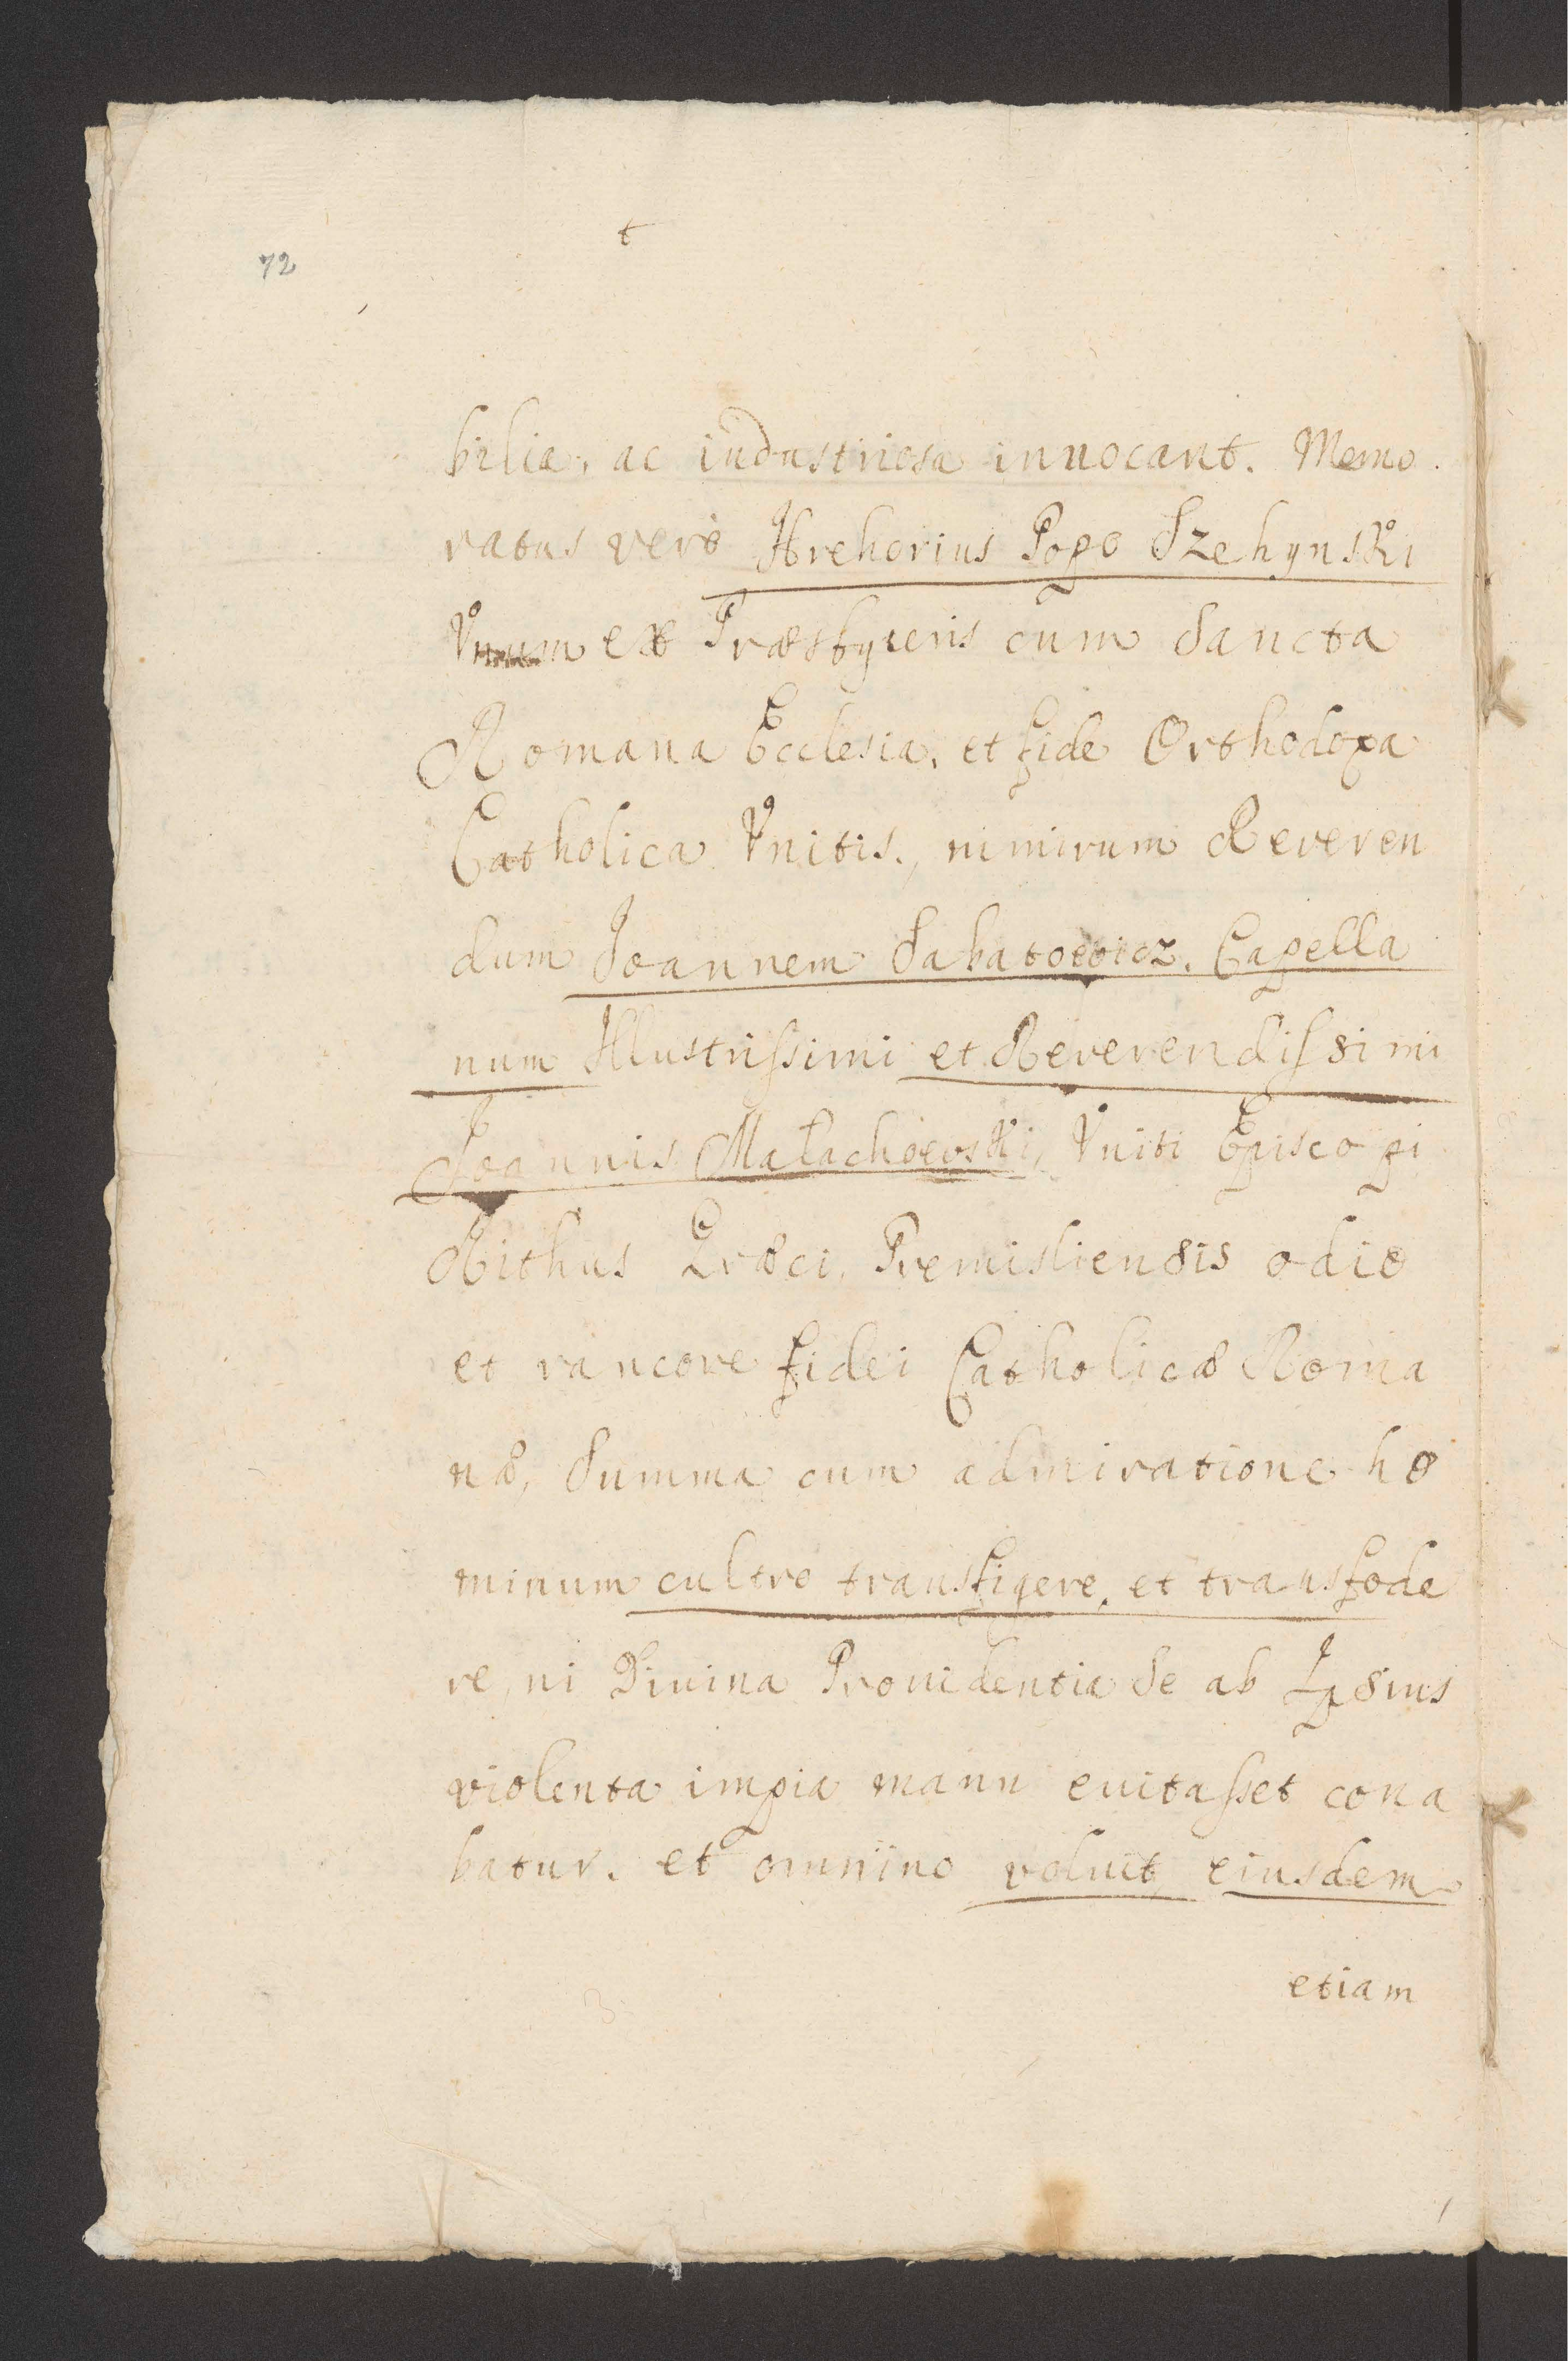 72
t
bilia, ac industriosa innocant. Memo
ratus verò Hrehorius Popo Szehynski
Vnum ex Præsbyteris cum Sancta
Romana Ecclesia, et fide Orthodoxa
Catholica Vnitis, nimirum Reveren
dum Joannem Sabatowicz, Capella
num Illustrissimi et Reverendissimi
Joannis Małachowski, Vniti Episcopi
Rithus Græci, Premisliensis odio
et rancore fidei Catholicæ Roma
næ, Summa cum admiratione ho
minum cultro transfigere, et transfode
re, ni Diuina Prouidentia Se ab Ipsius
violenta impia manu euitasset cona
batur. et omnino voluit, eiusdem
etiam